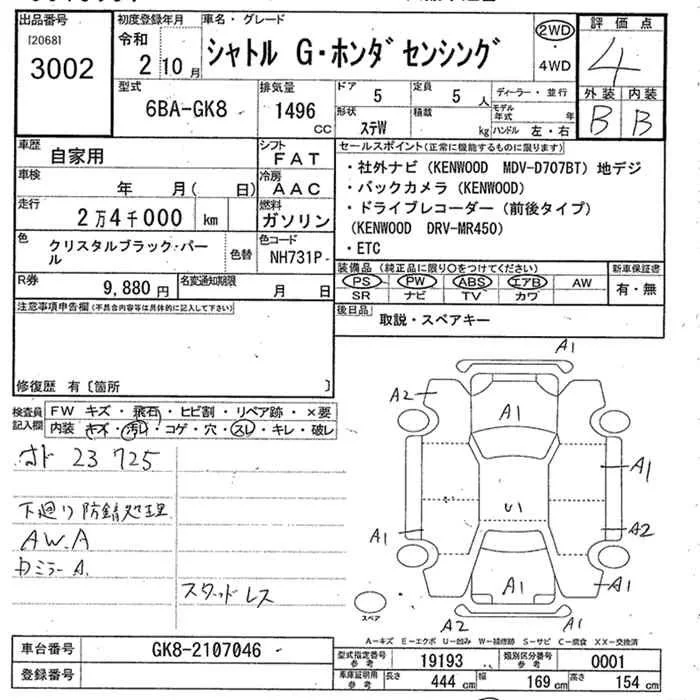 出品番号
[2068]
3002
初度登録年月
令和
2 10月
車名・グレード
シャトル G・ホンダセンシング
2WD
・
4WD
評価点
4
外装 内装
B B
型式
6BA-GK8
排気量
1496
CC
ドア
5
定員
5 人
形状
ステW
積載
kg
ディーラー・並行
モデル年式 年
ハンドル 左・右
車歴
自家用
シフト
FAT
車検
年 月( 日)
冷房
AAC
走行
2万4千000 km
燃料
ガソリン
色
クリスタルブラック・パール
色替
色コード
NH731P
R券
9,880円
名変通知期限
月 日
セールスポイント(正常に機能するものに限ります)
・社外ナビ(KENWOOD MDV-D707BT)地デジ
・バックカメラ(KENWOOD)
・ドライブレコーダー(前後タイプ)
(KENWOOD DRV-MR450)
・ETC
装備品(純正品に限り○をつけてください)
PS PW ABS エアB AW
SR ナビ TV カワ
新車保証書
有・無
後日品
取説・スペアキー
注意事項申告欄(不具合内容等は具体的に記入して下さい)
修復歴 有〔箇所 〕
検査員記入欄
FW キズ・飛石・ヒビ割・リペア跡・×要
内装 キズ・汚れ・コゲ・穴・スレ・キレ・破レ
23725
下廻り防錆処理
AW.A
カミラーA.
スタッドレス
A1
A2
A1
A1
U1
A1
A2
A1
A1
A1
スペア
A-キズ E-エクボ U-凹み W-補修跡 S-サビ C-腐食 XX-交換済
車台番号
GK8-2107046
登録番号
型式指定番号
参考
19193
類別区分番号
参考
0001
車庫証明用
参考
長さ 444 cm
幅 169 cm
高さ 154 cm